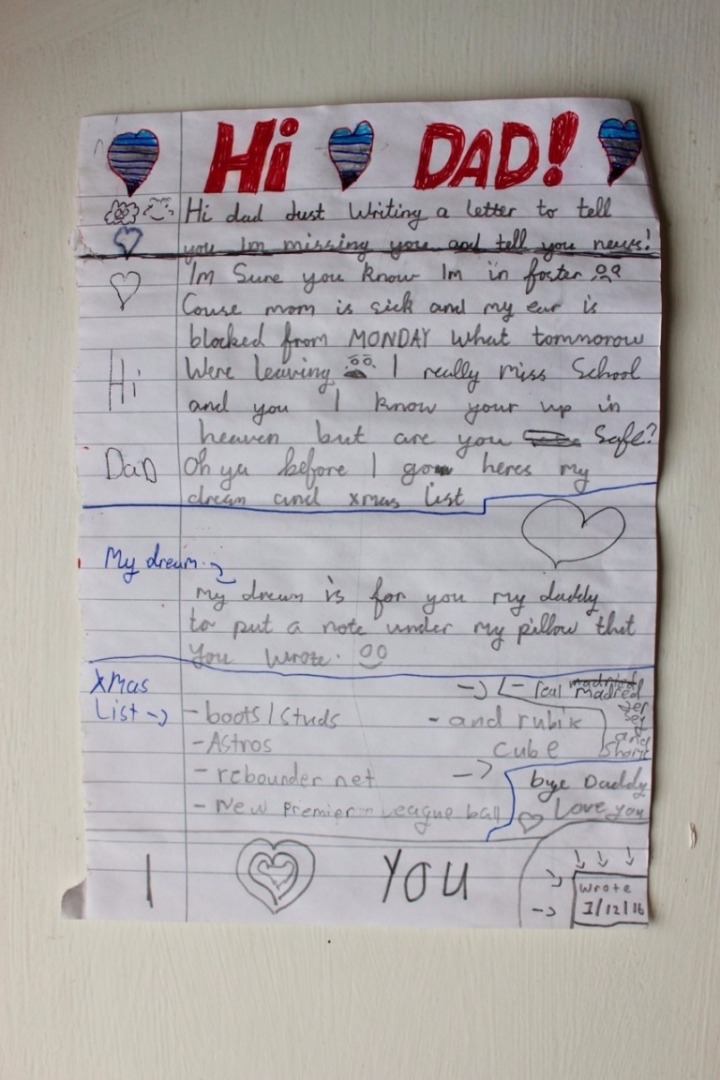 Hi DAD!
Hi dad Just Writing a Letter to tell
you Im missing you and tell you news!
Im Sure you know Im in foster
Couse mom is sick and my ear is
blocked from MONDAY What tommorow
Were leaving I really miss School
and you I know your up in
heaven but are you Safe?
Oh ya before I go heres my
dream and xmas list
Hi
DaD
My dream
my dream is for you my daddy
to put a note under my pillow that
you wrote.
XMas
List
- boots/studs
- Astros
- rebounder net
- New Premier League ball
- and rubik
cube
- real madrid
Madred
jersey
and
Shorts
bye Daddy
Love you
I YOU
Wrote
1/12/16